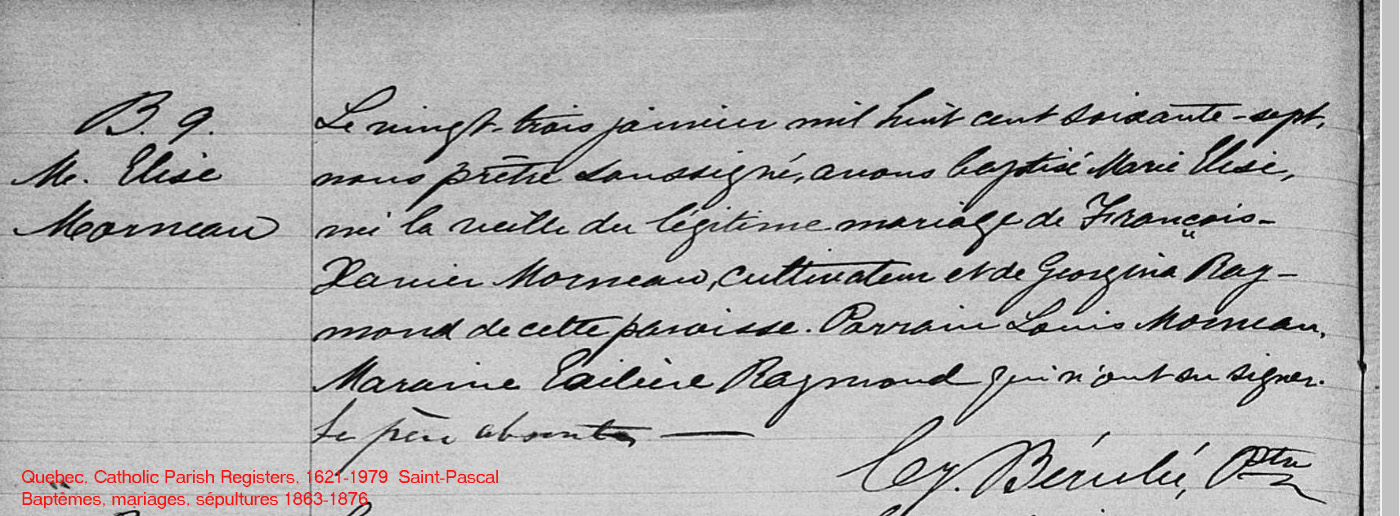 B. 9.
M. Elise
Morneau
Le vingt-trois janvier mil huit cent soixante-sept,
nous prêtre soussigné, avons baptisé Marie Elise,
née la veille du légitime mariage de François-
Xavier Morneau, cultivateur et de Georgina Ray-
mond de cette paroisse. Parrain Louis Morneau,
Maraine Raymond qui n'ont su signer.
Le père absent
Bérubé, Ptre
Quebec, Catholic Parish Registers, 1621-1979 Saint-Pascal
Baptêmes, mariages, sépultures 1863-1876